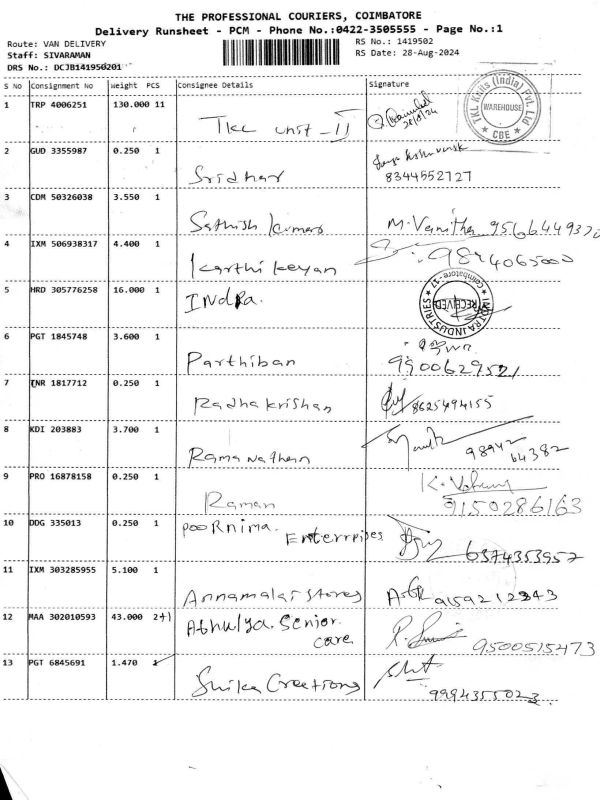 THE PROFESSIONAL COURIERS, COIMBATORE
Delivery Runsheet - PCM - Phone No.:0422-3505555 - Page No.:1
Route: VAN DELIVERY
RS No.: 1419502
Staff: SIVARAMAN
RS Date: 28-Aug-2024
DRS No.: DCJB141950201
S No Consignment No Weight PCS Consignee Details Signature
1 TRP 4006251 130.000 11 TKL unit - II 28/8/24
TKL Knits (India) Pvt. Ltd
WAREHOUSE
CBE
2 GUD 3355987 0.250 1 Sridhar 8344552727
3 CDM 50326038 3.550 1 Sathish kumar M. Vanitha 9566449370
4 IXM 506938317 4.400 1 Karthikeyan 9874065000
5 HRD 305776258 16.000 1 INDRA.
INDTRA INDUSTRIES
Coimbatore - 17
RECEIVED
6 PGT 1845748 3.600 1 Parthiban 9900629521
7 ENR 1817712 0.250 1 Radha krishan 8625494155
8 KDI 203883 3.700 1 Ramanathan 98942
64382
9 PRO 16878158 0.250 1 Raman 9150286163
10 DDG 335013 0.250 1 POORNima. Enterprises 6374353957
11 IXM 303285955 5.100 1 Annamalai Stores 9159212343
12 MAA 302010593 43.000 2+1 Athulya. Senior.
care 9500515473
13 PGT 6845691 1.470 1 Creations 9994355023.